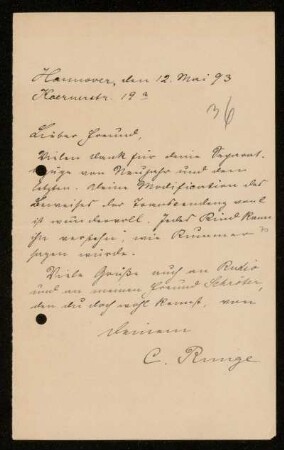 Hannover, den 12. Mai 93
Koernerstr. 19 a
36
Lieber Freund,
Vielen Dank für deine Separat-
züge von Neujahr und den
letzten. Deine Modification des
Beweises der Transcendenz von e
ist wundervoll. Jedes Kind kann
ihn verstehen, wie Kummer
sagen würde.
Viele Grüße auch an Rudio
und an meinen Freund Schröter,
den du doch wohl kennst, von
Deinem
C. Runge